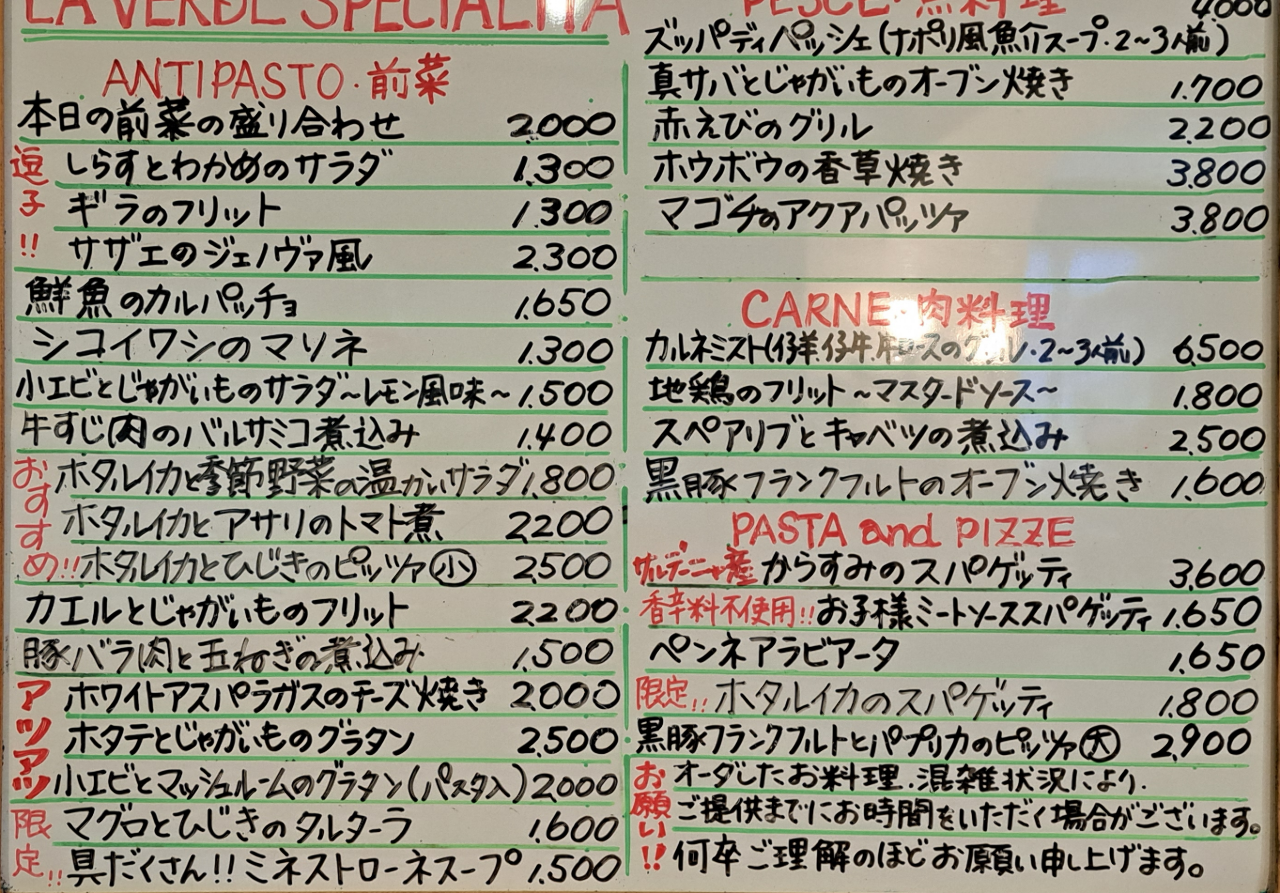 LA VERDE SPECIALITA
ANTIPASTO・前菜
本日の前菜の盛り合わせ 2.000
逗子!!
しらすとわかめのサラダ 1.300
ギラのフリット 1.300
サザエのジェノヴァ風 2.300
鮮魚のカルパッチョ 1.650
シコイワシのマリネ 1.300
小エビとじゃがいものサラダ～レモン風味～ 1.500
牛すじ肉のバルサミコ煮込み 1.400
おすすめ!!
ホタルイカと季節野菜の温かいサラダ 1.800
ホタルイカとアサリのトマト煮 2200
ホタルイカとひじきのピッツァ小 2500
カエルとじゃがいものフリット 2200
豚バラ肉と玉ねぎの煮込み 1.500
アツアツ
ホワイトアスパラガスのチーズ焼き 2000
ホタテとじゃがいものグラタン 2.500
小エビとマッシュルームのグラタン(パスタ入) 2000
限定!!
マグロとひじきのタルターラ 1.600
具だくさん!!ミネストローネスープ 1.500
PESCE・魚料理 4000
ズッパディペッシェ(ナポリ風魚介スープ・2～3人前)
真サバとじゃがいものオーブン焼き 1.700
赤えびのグリル 2200
ホウボウの香草焼き 3.800
マゴチのアクアパッツァ 3.800
CARNE・肉料理
カルネミスト(仔羊、仔牛、牛ロースのグリル・2～3人前) 6,500
地鶏のフリット～マスタードソース～ 1.800
スペアリブとキャベツの煮込み 2,500
黒豚フランクフルトのオーブン焼き 1.600
PASTA and PIZZE
サルデーニャ産からすみのスパゲッティ 3,600
香辛料不使用!!お子様ミートソーススパゲッティ 1.650
ペンネアラビアータ 1,650
限定!!ホタルイカのスパゲッティ 1.800
黒豚フランクフルトとパプリカのピッツァ大 2,900
お願い!!
オーダしたお料理、混雑状況により、
ご提供までにお時間をいただく場合がございます。
何卒ご理解のほどお願い申し上げます。